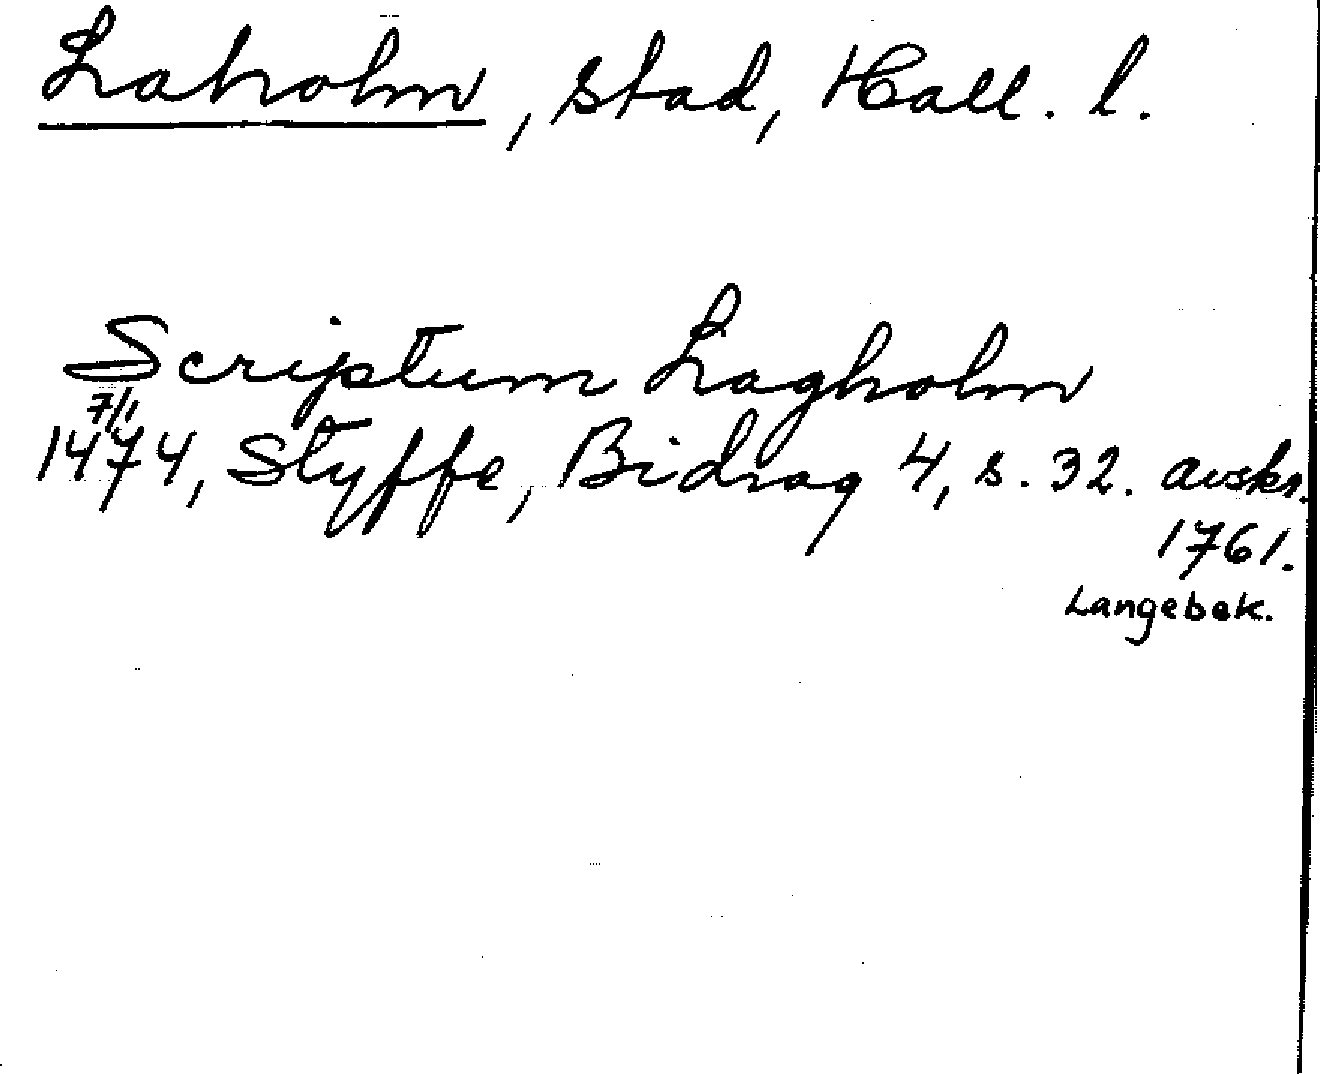 Laholm, stad, Hall. l.
Scriptum Lagholm
7/1
1474, Styffe, Bidrag 4, s. 32. avskr.
1761.
Langebek.